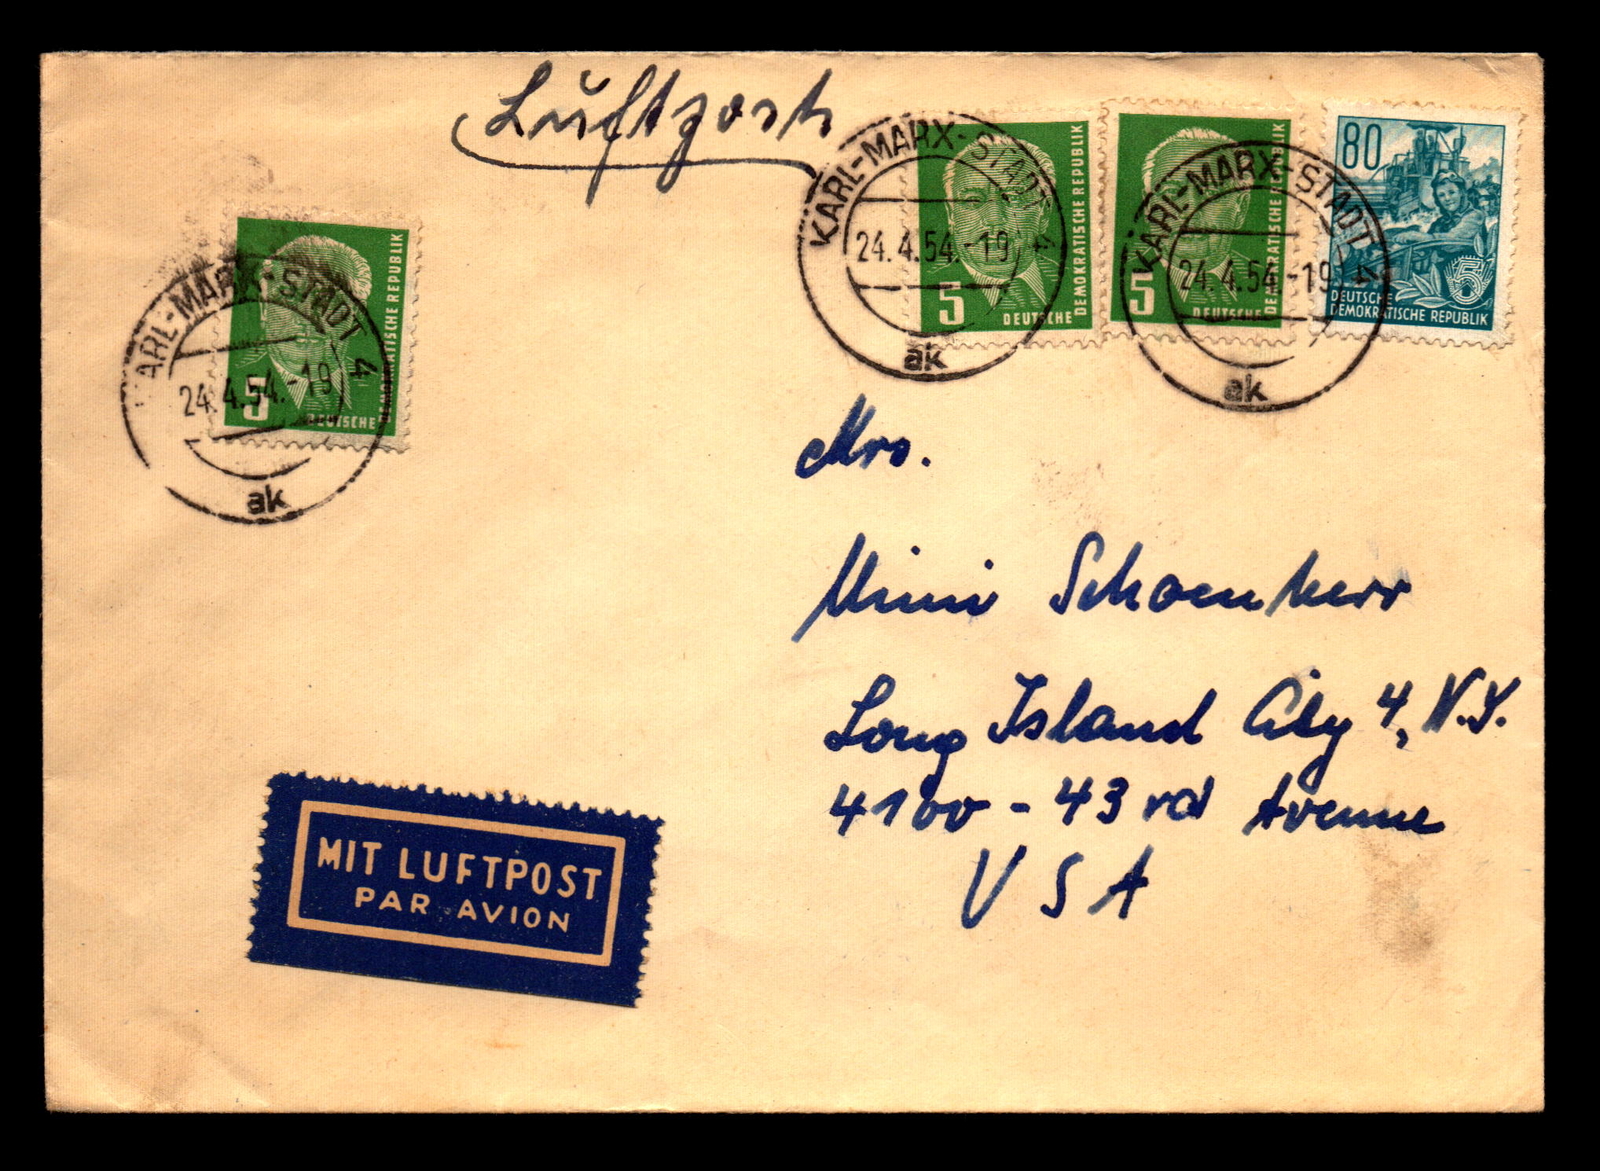 Luftpost
KARL-MARX-STADT 4
24.4.54.-19
ak
5
DEUTSCHE
DEMOKRATISCHE REPUBLIK
KARL-MARX-STADT 4
24.4.54.-19
ak
5
DEUTSCHE
DEMOKRATISCHE REPUBLIK
80
5
DEUTSCHE
DEMOKRATISCHE REPUBLIK
KARL-MARX-STADT 4
24.4.54.-19
ak
5
DEUTSCHE
DEMOKRATISCHE REPUBLIK
Mrs.
Mimi Schoenherr
Long Island City 4, N.Y.
4100 - 43rd Avenue
USA
MIT LUFTPOST
PAR AVION